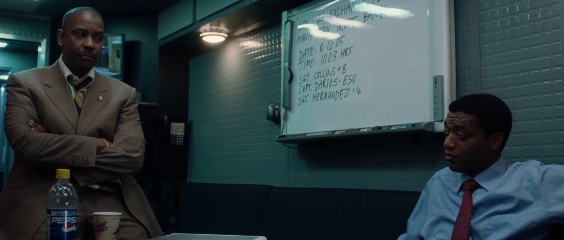 DATE: 6-12-05
TIME: 1003 HRS
SGT. COLLINS +8
CAPT. DARIUS-ESU
SGT. HERNANDEZ +4
PEPSI